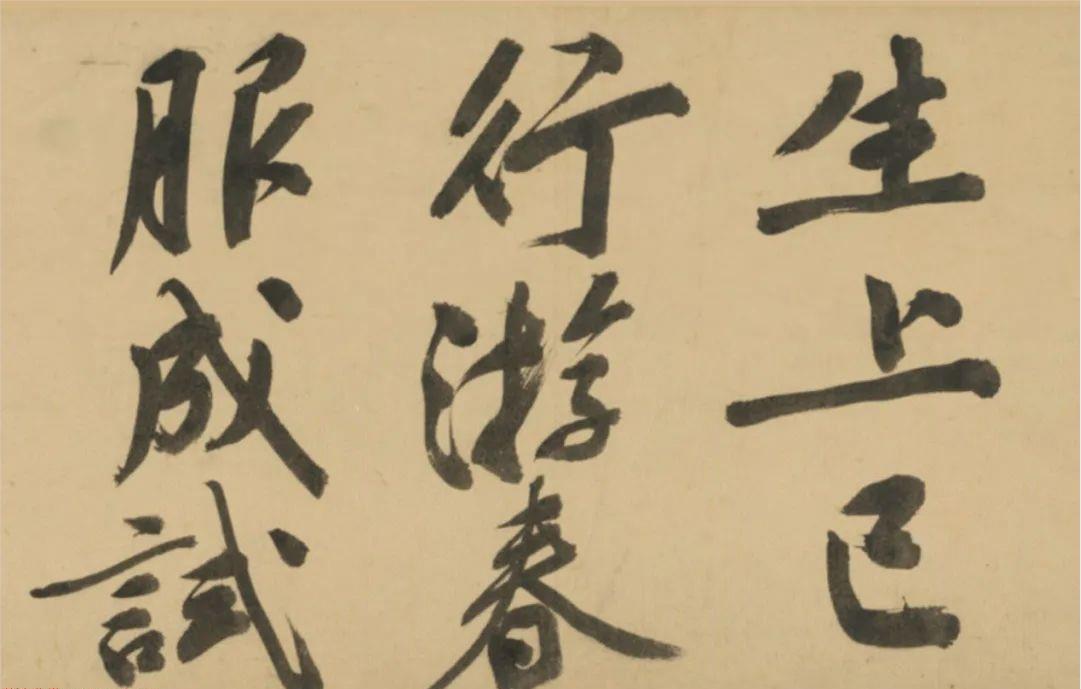 生上巳
行游春
服成試